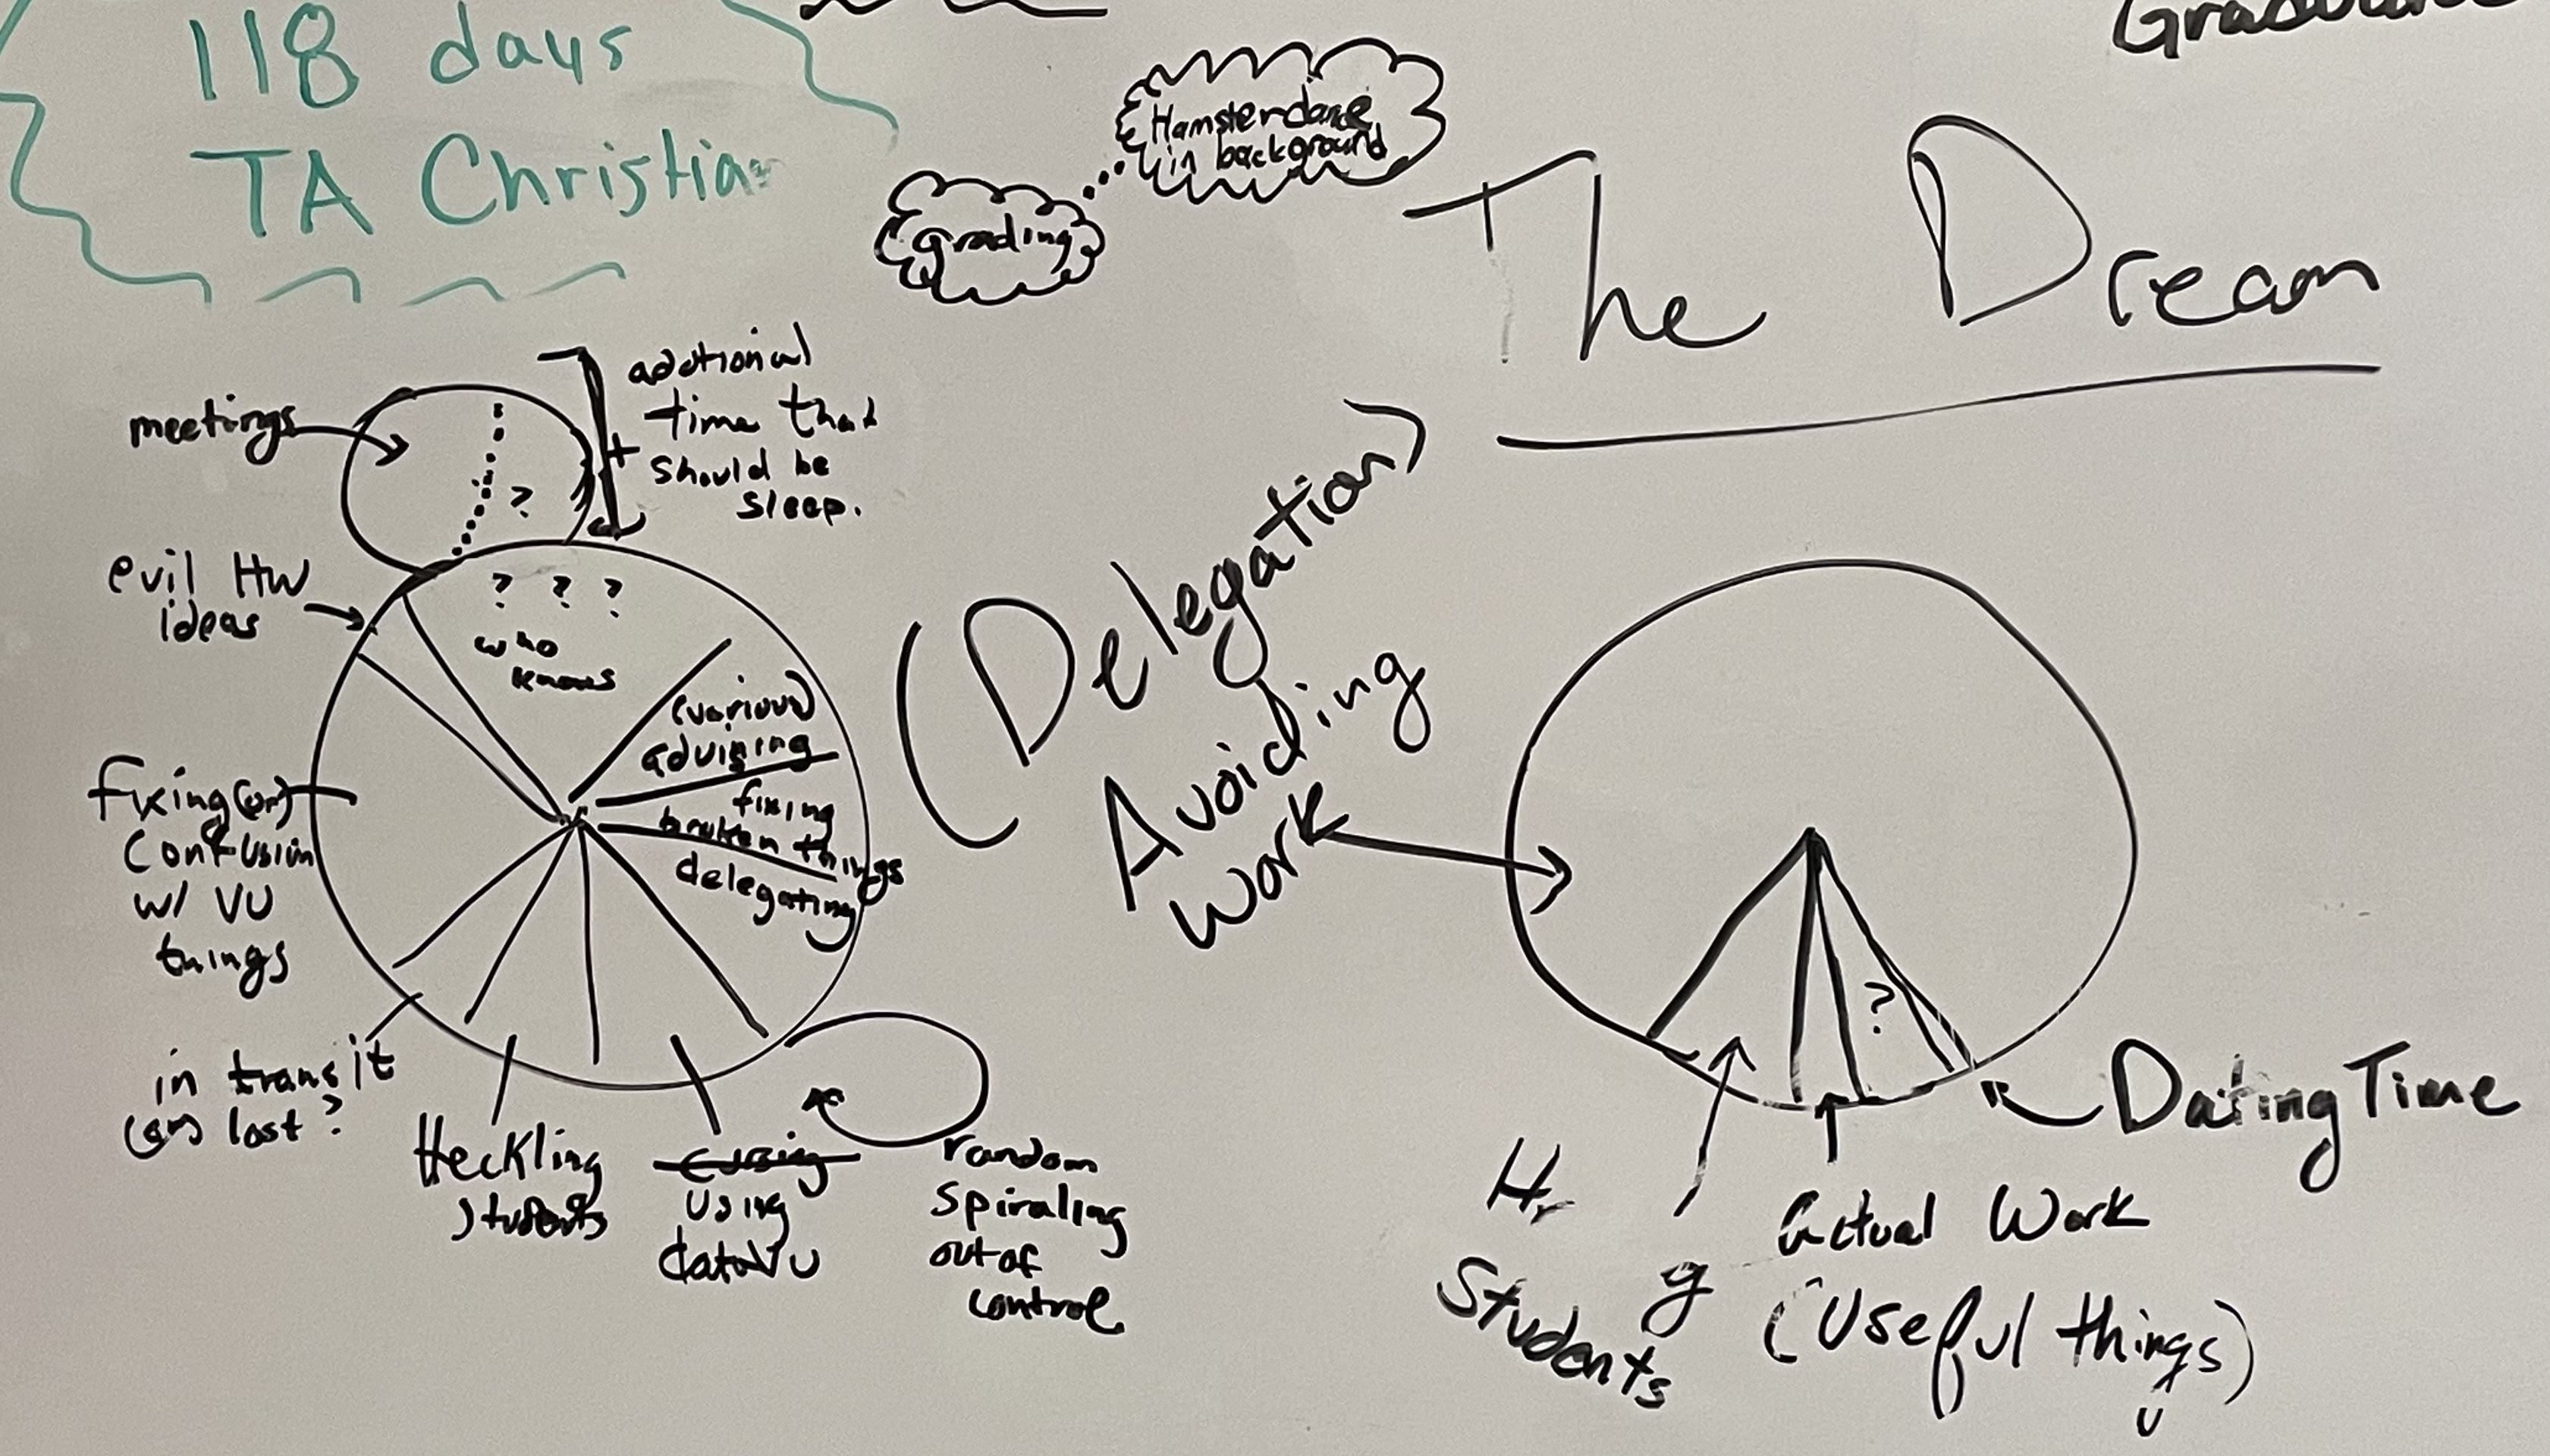 118 days
TA Christian
Hamsterdance
in background
Grading
The Dream
meetings
?
additional
time that
should be
sleep.
evil HW
ideas
? ? ?
who
knows
(various)
advising
fixing
broken things
delegating
fixing (or)
confusion
w/ VU
things
in transit
(or) lost?
Heckling
students
cursing
using
dataVU
random
spiraling
out of
control
(Delegation)
Avoiding
Work
?
Dating Time
Students
Actual Work
(Useful things)